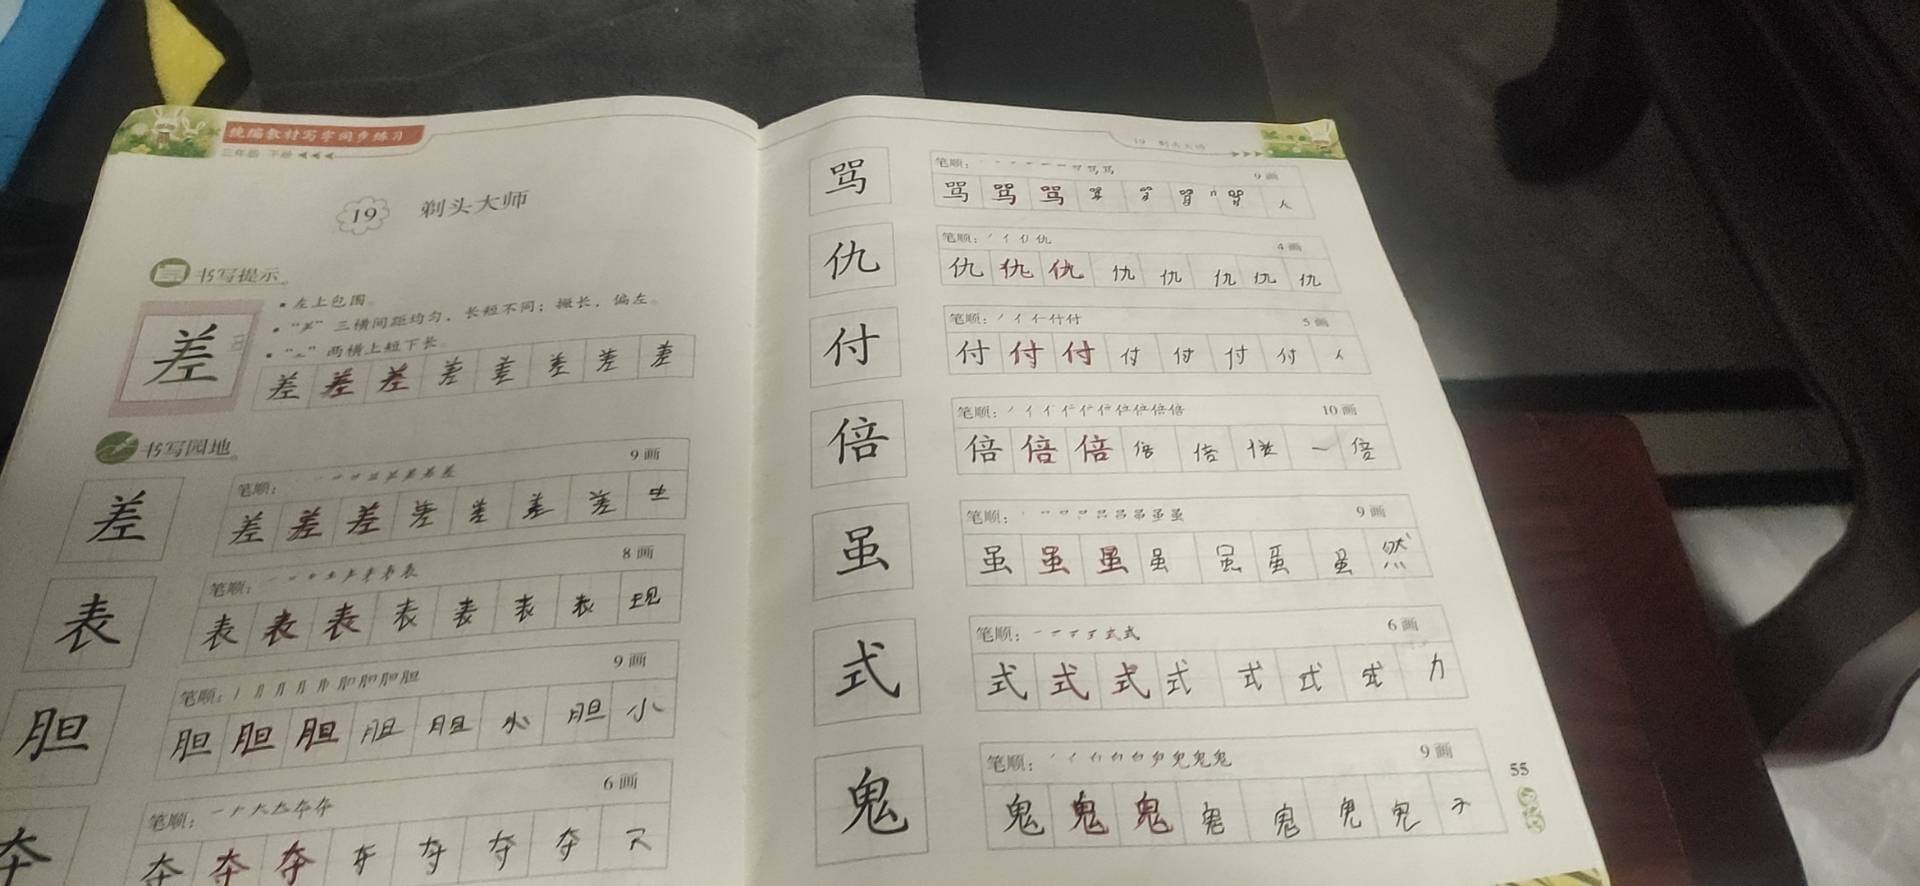 统编教材写字同步练习
三年级 下册
19 剃头大师
书写提示
差
• 左上包围。
• “⺶” 三横间距均匀，长短不同；撇长，偏左。
两横上短下长
差 差 差 差 差 差 差 差
书写园地
差
笔顺： 9画
差 差 差 差 差 差 差
表
笔顺： 8画
表 表 表 表 表 表 表 现
胆
笔顺： 9画
胆 胆 胆 胆 胆 胆 小
夺
笔顺： 6画
夺 夺 夺 夺 夺 夺 夺
19 剃头大师
骂
笔顺： 9画
骂 骂 骂 人
仇
笔顺： 4画
仇 仇 仇 仇 仇 仇 仇 仇
付
笔顺： 5画
付 付 付 付 付 付 付 人
倍
笔顺： 10画
倍 倍 倍 倍 倍 一 倍
虽
笔顺： 9画
虽 虽 虽 虽 虽 虽 虽 然
式
笔顺： 6画
式 式 式 式 式 式 式 力
鬼
笔顺： 9画
鬼 鬼 鬼 鬼 鬼 鬼 鬼 子
55